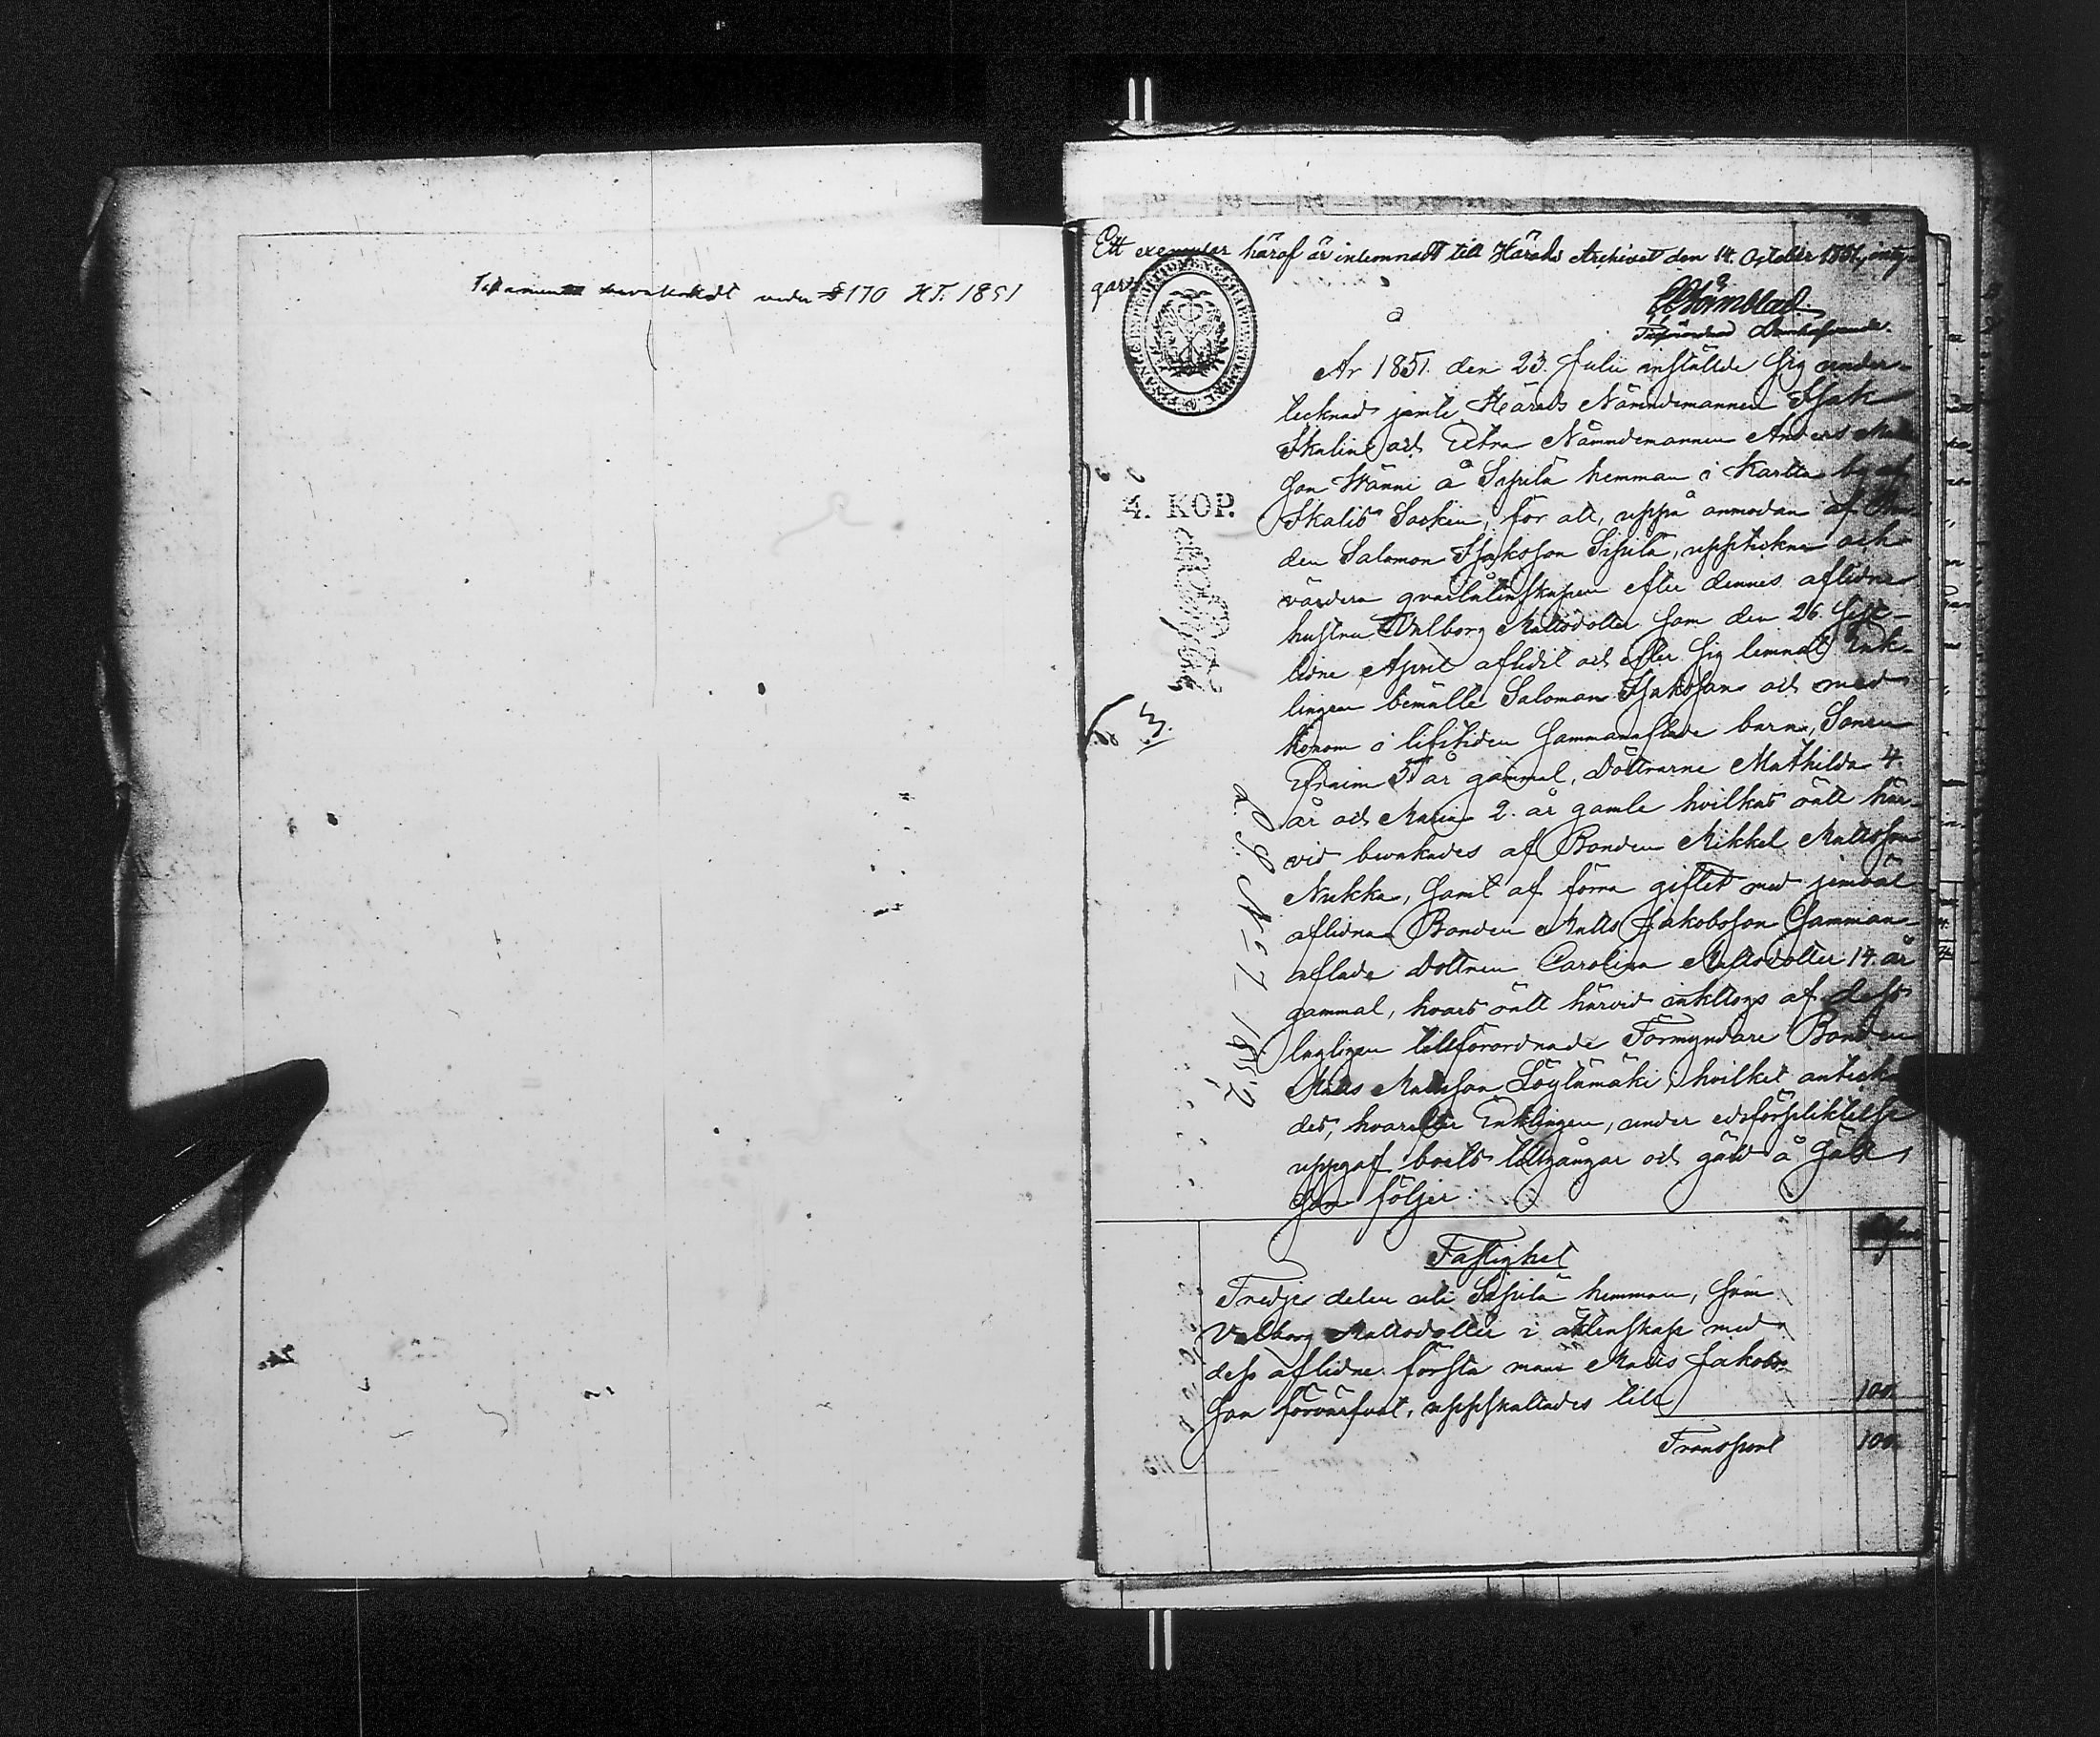 Testamentet bevakadt under § 170 HT. 1851
Ett exemplar häraf är inlemnadt till Härads Archivet den 14 October 1851, inty-
gar
Tillförordnad Domhafvande.
År 1851 den 23 Julii inställde sig under-
tecknad jemte Härads Nämndemannen Isak
Skalin och Extra Nämndemannen Anders Matts
son Wänni å Sipilä hemman i Karlla by af
Skalis Socken, för att, uppå anmodan af Bon
den Salomon Isaksson Sipilä, uppteckna och
värdera qvarlåtenskapen efter dennes aflidne
hustru Valborg Mattsdotter som den 26 sist-
lidne April aflidit och efter sig lemnat Enk-
lingen bemälte Salomon Isaksson och med
honom i lifstiden sammanaflade barn, Sonen
Efraim 5 år gammal, Döttrarne Mathilda 4
år och Maria 2 år gamle hvilkas rätt här-
vid bevakades af Bonden Mikkel Mattsson
Nukka, samt af förra giftet med jemväl
aflidna Bonden Matts Jakobsson samman-
aflade dottren Carolina Mattsdotter 14 år
gammal, hvars rätt härvid iakttogs af dess
lagligen tillförordnade Förmyndare Bonden
Matts Mattsson Löytämäki, hvilket anteckna
des, hvarefter Enklingen, under edsförpliktelse
uppgaf boets tillgångar och gäld å sätt,
som följer
4. KOP.
3.
L. S. N. 57 1852
Fastighet
Tredje delen uti Sipilä hemman, som
Valborg Mattsdotter i äktenskap med
dess aflidne första man Matts Jakobs-
son förvärfvat, uppskattades till 100.
Transport 100.